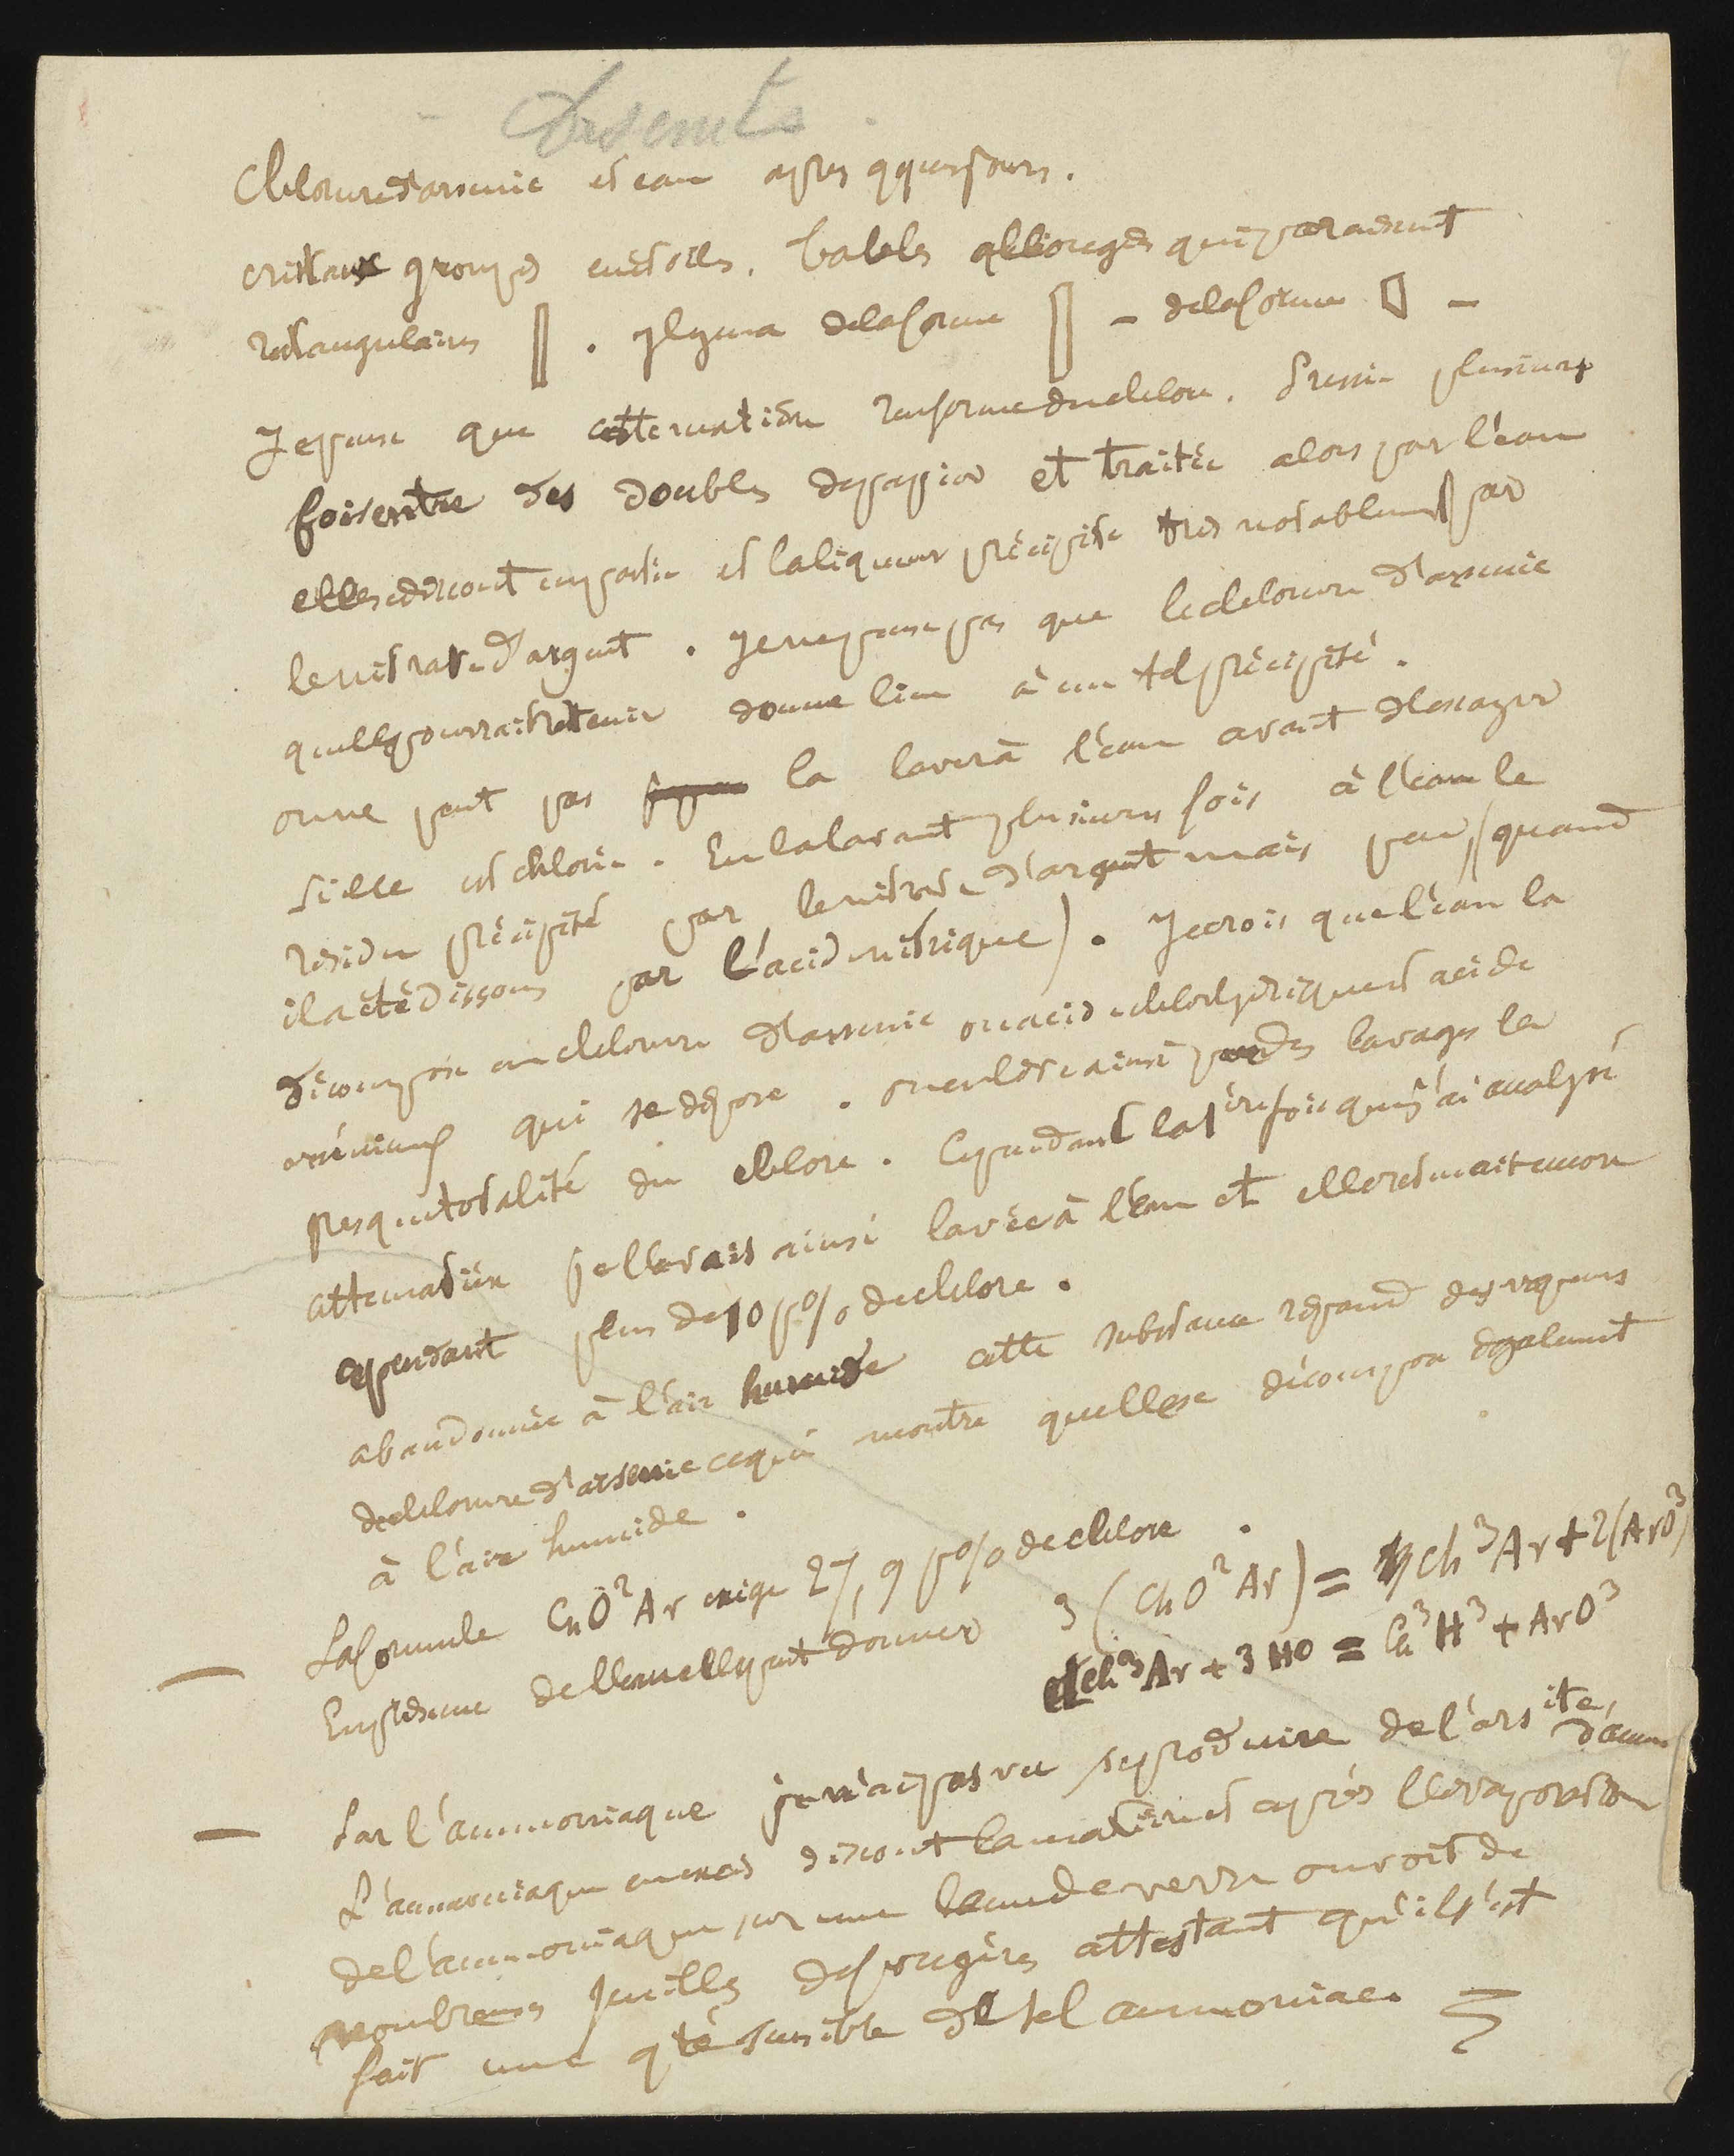 Arsenite
Chlorure d'arsenic et eau après qques jours.
cristaux groupés en étoiles. Tables allongées qui paraissent
rectangulaires . Il y en a de la forme – de la forme –
Je pense que cette matière renferme du chlore. Pressée plusieurs
fois entre des doubles de papier et traitée alors par l'eau
elle se dissout en partie et la liqueur précipite très notablement par
le nitrate d'argent. Je ne pense pas que le chlorure d'arsenic
qu'elle pourrait retenir donne lieu à un tel précipité.
on ne peut pas la laver à l'eau avant d'essayer
si elle est chlorée. En la lavant plusieurs fois à l'eau le
résidu précipité par le nitrate d'argent mais peu (quand
il a été dissous par l'acide nitrique). Je crois que l'eau la
décompose en chlorure d'arsenic ou acide chlorhydrique et acide
arsénieux qui se dépose. on enlève ainsi par des lavages la
presque totalité du chlore. Cependant la 1ère fois que j'ai analysé
cette matière je l'avais ainsi lavée à l'eau et elle retenait encore
cependant plus de 10 p% de chlore.
abandonnée à l'air humide cette substance répand des vapeurs
de chlorure d'arsenic ce qui montre qu'elle se décompose également
à l'air humide.
— La formule ChO²Ar exige 27,9 p% de chlore.
En présence de l'eau elle peut donner 3(ChO²Ar) = Ch³Ar + 2(ArO³)
et Ch³Ar + 3HO = Ch³H³ + ArO³
— Par l'ammoniaque je n'ai pas vu se produire de l'arsite d'amm
L'ammoniaque en excès dissout la matière et après l'évaporation
de l'ammoniaque sur une lame de verre on voit de
nombreuses feuilles de fougères attestant qu'il s'est
fait une qté sensible de sel ammoniac.